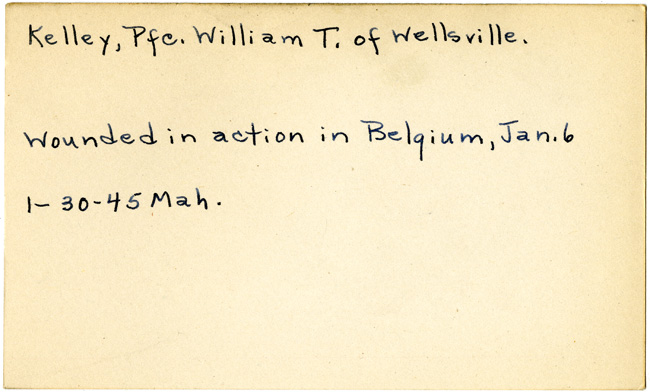 Kelley, Pfc. William T. of Wellsville.
Wounded in action in Belgium, Jan. 6
1-30-45 Mah.